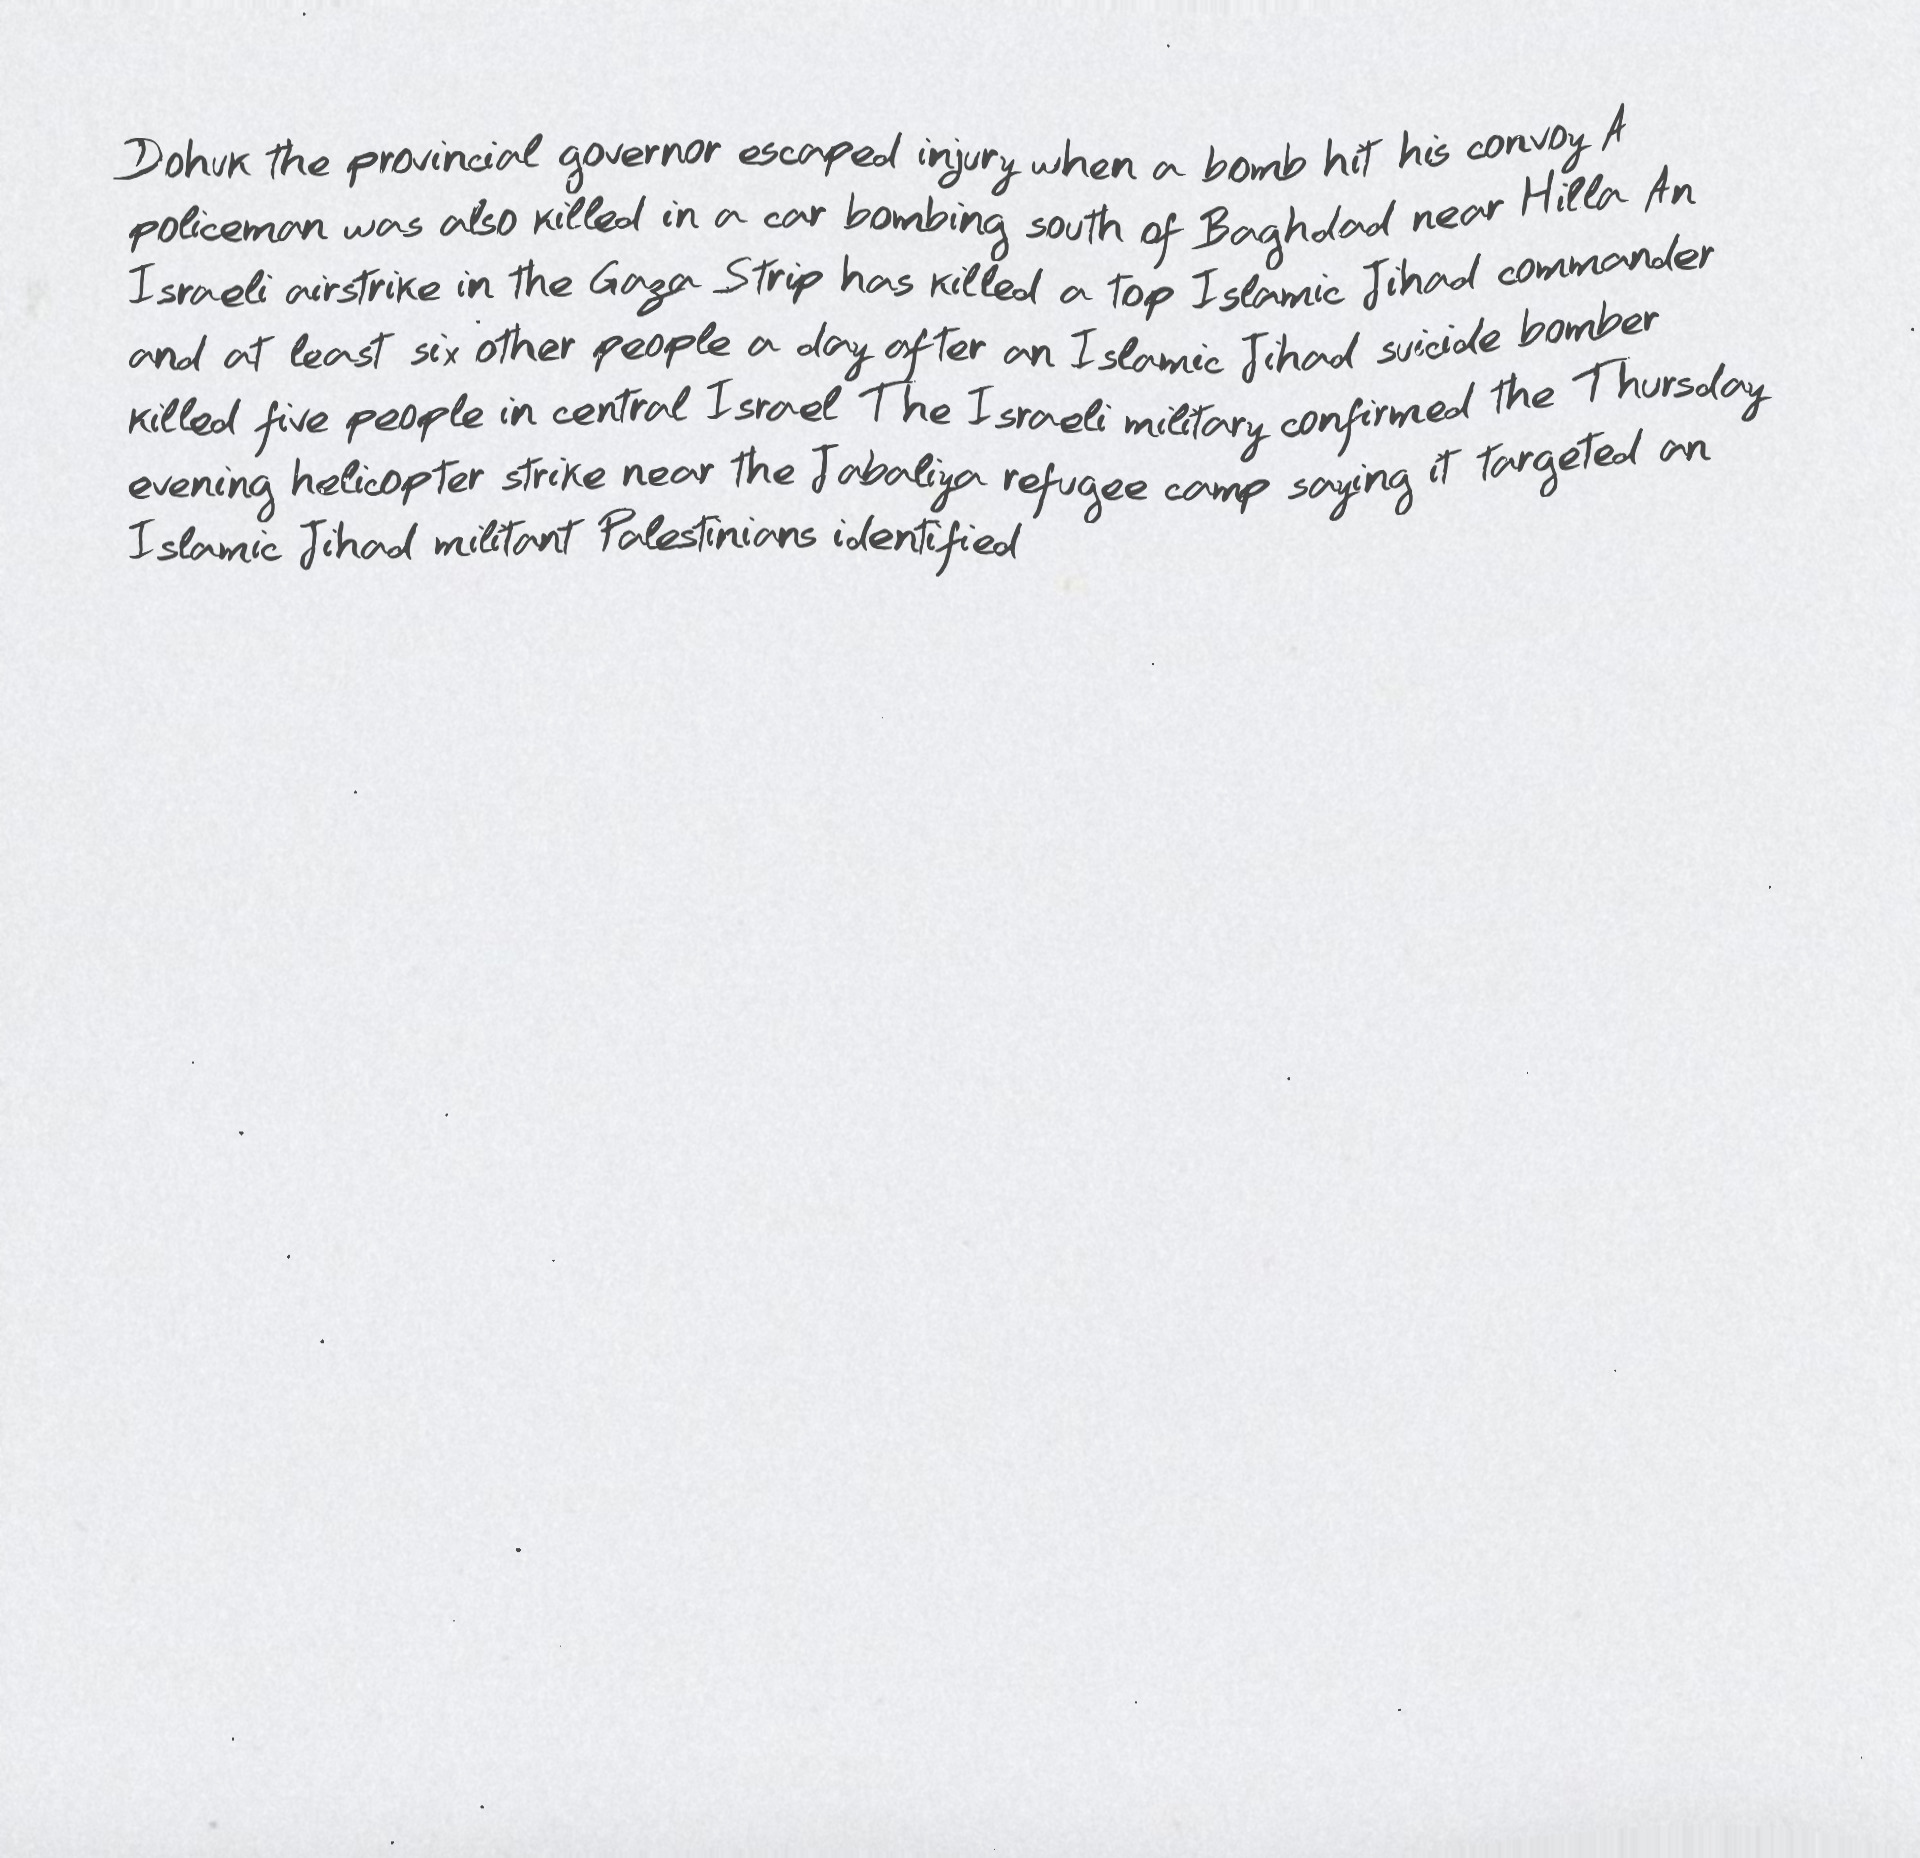 Dohuk the provincial governor escaped injury when a bomb hit his convoy A
policeman was also killed in a car bombing south of Baghdad near Hilla An
Israeli airstrike in the Gaza Strip has killed a top Islamic Jihad commander
and at least six other people a day after an Islamic Jihad suicide bomber
killed five people in central Israel The Israeli military confirmed the Thursday
evening helicopter strike near the Jabaliya refugee camp saying it targeted an
Islamic Jihad militant Palestinians identified